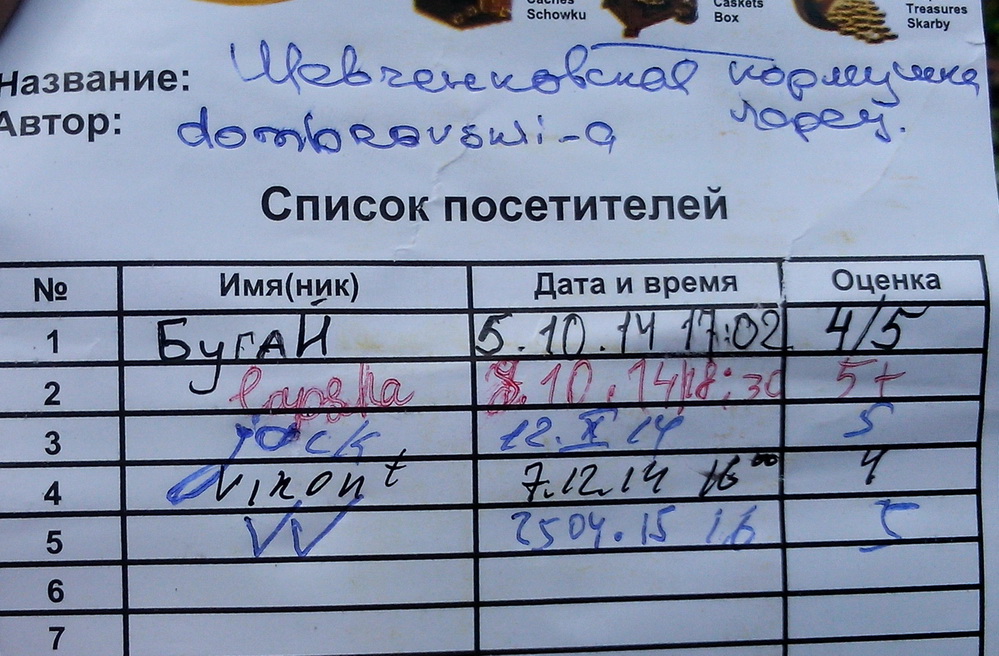 Caches
Schowku
Caskets
Box
Treasures
Skarby
Название: Шевченковская кормушка
ларец.
Автор: dombrovski-a
Список посетителей
№ Имя(ник) Дата и время Оценка
1 Бугай 5.10.14 17:02 4/5
2 8.10.14 18:30 5+
3 jock 12.X 14 5
4 Vikont 7.12.14 16 00 4
5 VV 25 04.15 16 5
6
7